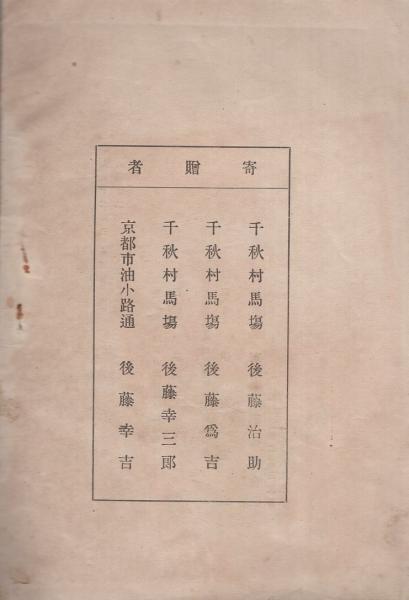 寄贈者
千秋村馬塲 後藤治助
千秋村馬塲 後藤爲吉
千秋村馬塲 後藤幸三郞
京都市油小路通 後藤幸吉